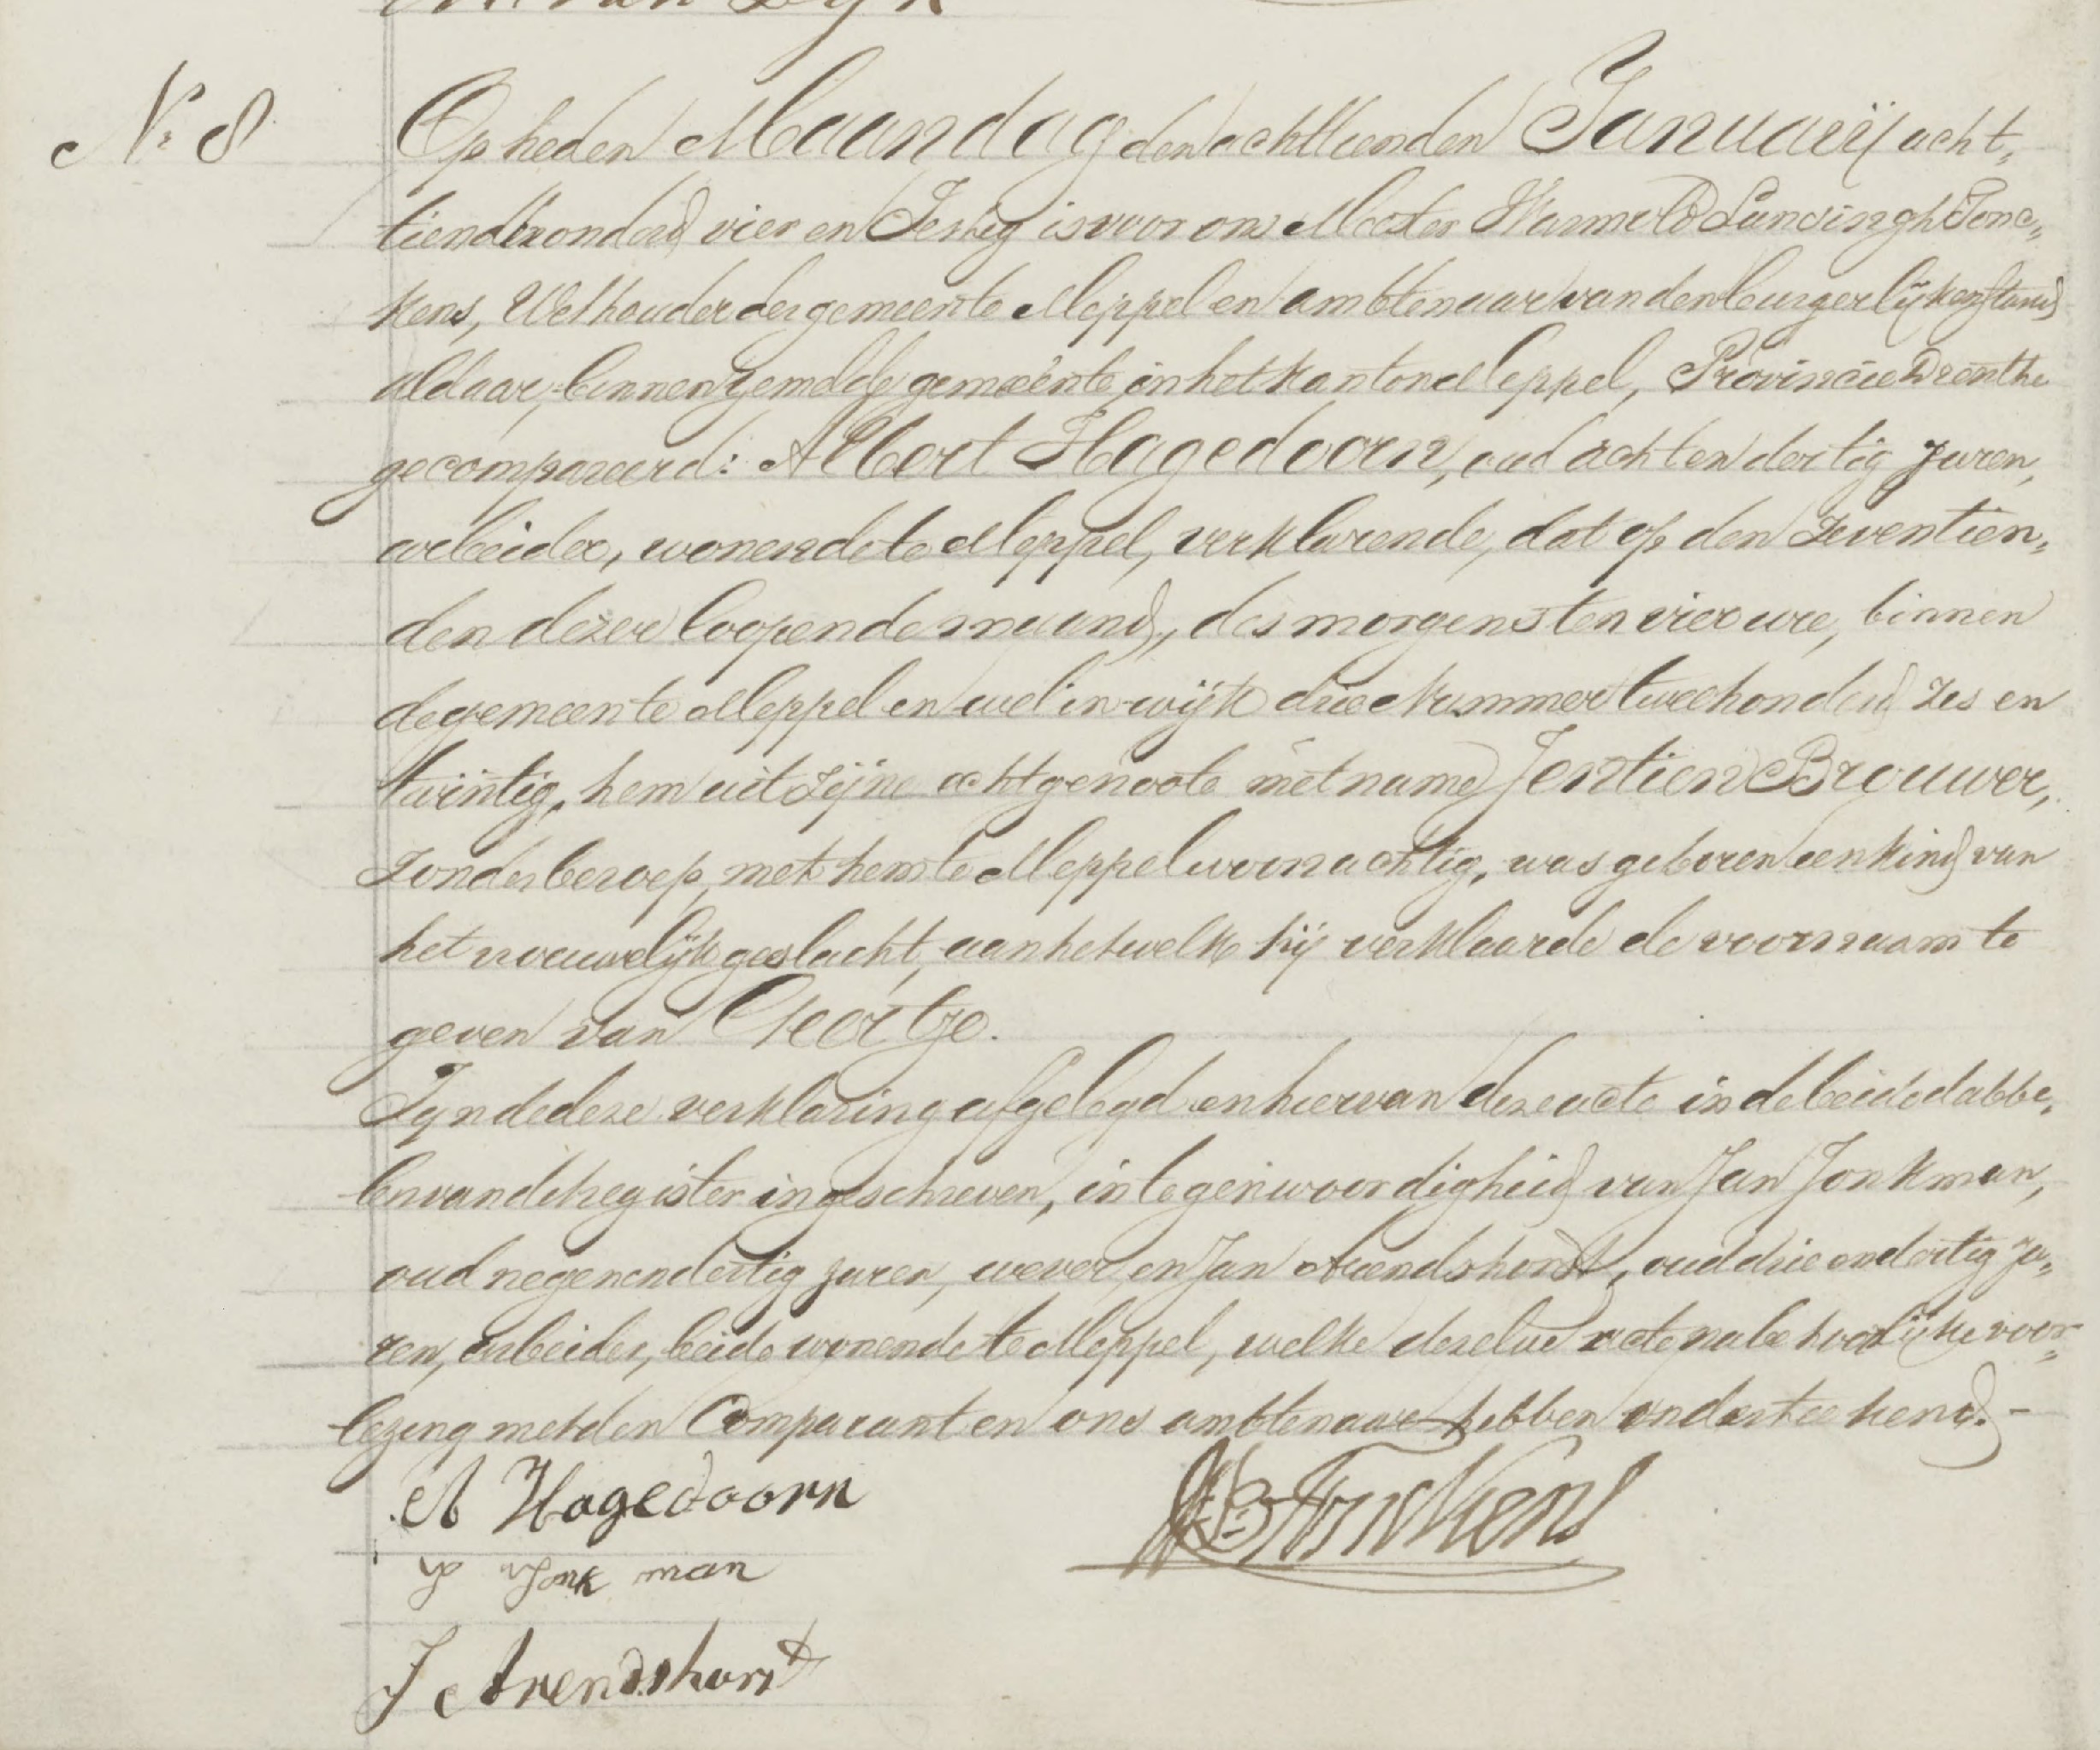 N. 8
Op heden Maandag den achttienden Januarij acht„
tienhonderd vier en Sestig is voor ons Meester Warmold Lunsingh Tonc„
kens, Wethouder der gemeente Meppel en ambtenaar van den burgerlijken stand
aldaar, binnen gemelde gemeente in het kanton Meppel, Provincie Drenthe
gecompareerd: Albert Hagedoorn, oud acht en dertig jaren,
arbeider, wonende te Meppel, verklarende, dat op den zeventien„
den dezer loopende maand, des morgens ten vier ure, binnen
de gemeente Meppel en wel in wijk drie Nummer tweehonderd zes en
twintig, hem uit zijne echtgenoote met name Jentien Brouwer,
zonder beroep, met hem te Meppel woonachtig, was geboren een kind van
het vrouwelijk geslacht, aan hetwelk hij verklaarde de voornaam te
geven van Geertje.
Zijnde deze verklaring afgelegd en hiervan deze acte in de beide dubbe„
len van de register ingeschreven, in tegenwoordigheid van Jan Jonkman,
oud negenendertig jaren, wever, en Jan Arendshorst, oud drie en dertig ja„
ren, arbeider, beide wonende te Meppel, welke dezelve acte na behoorlijke voor„
lezing met den Comparant en ons ambtenaar hebben onderteekend. -
A Hagedoorn
J Jonk man
Tonckens
J Arendshorst